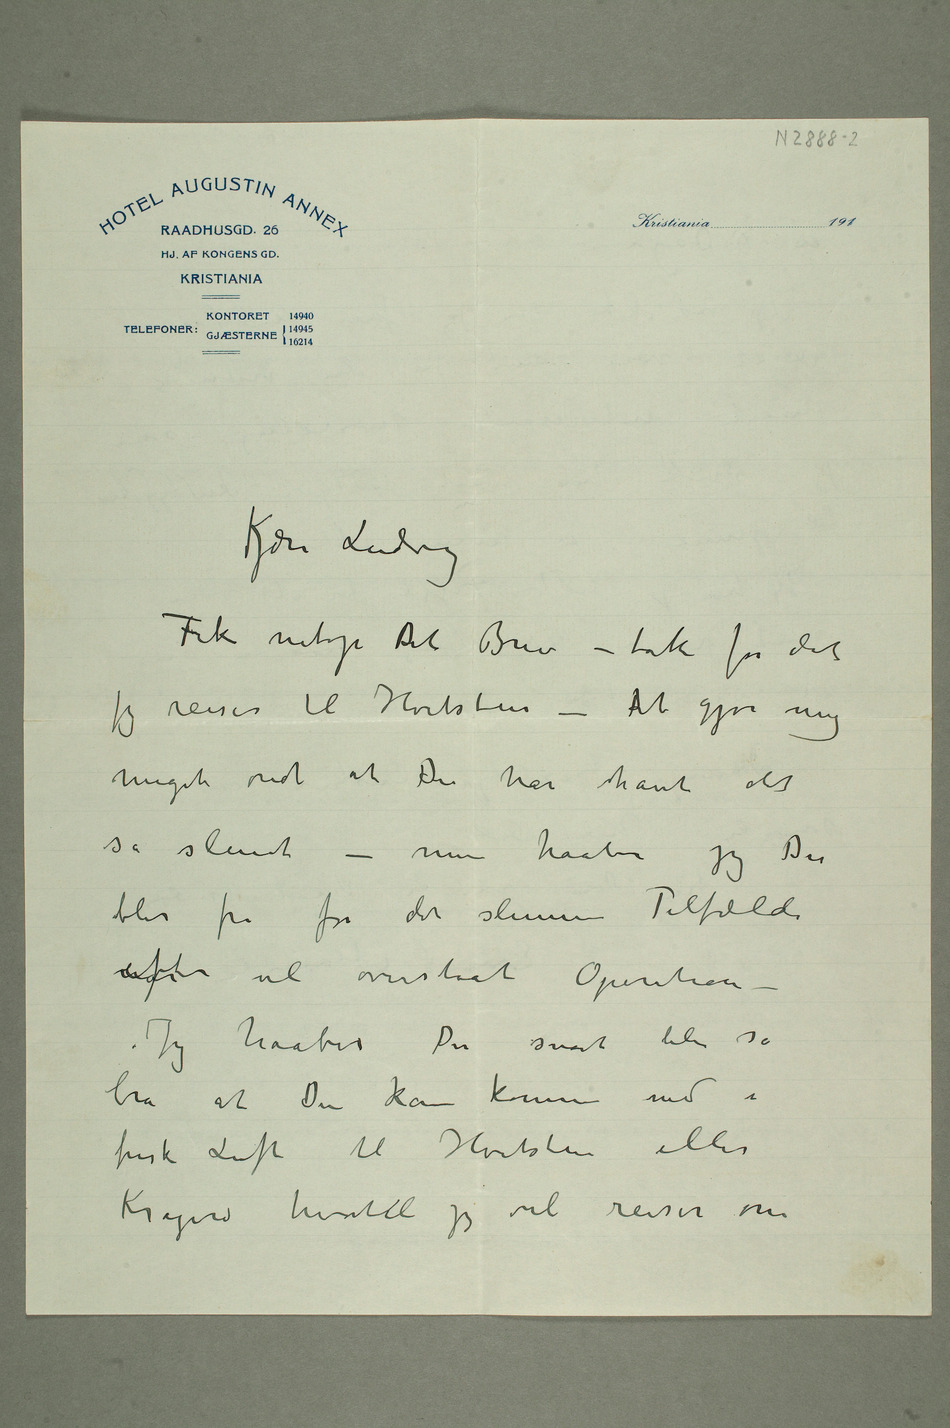 N 2888-2
HOTEL AUGUSTIN ANNEX
RAADHUSGD. 26
HJ. AF KONGENS GD.
KRISTIANIA
TELEFONER: KONTORET 14940
GJÆSTERNE 14945
16214
Kristiania 191
Kjære Ludvig
Fik netop Dit Brev – tak for det
Jeg reiser til Hvitsten – Det gjør mig
meget ondt at Du har havt det
så slemt – nu haaber jeg Du
blir fri for det slemme Tilfælde
efter vel overstaat Operation –
Jeg haaber Du snart blir så
bra at Du kan komme ned i
frisk Luft til Hvitsten eller
Kragerø hvortil jeg vel reiser om